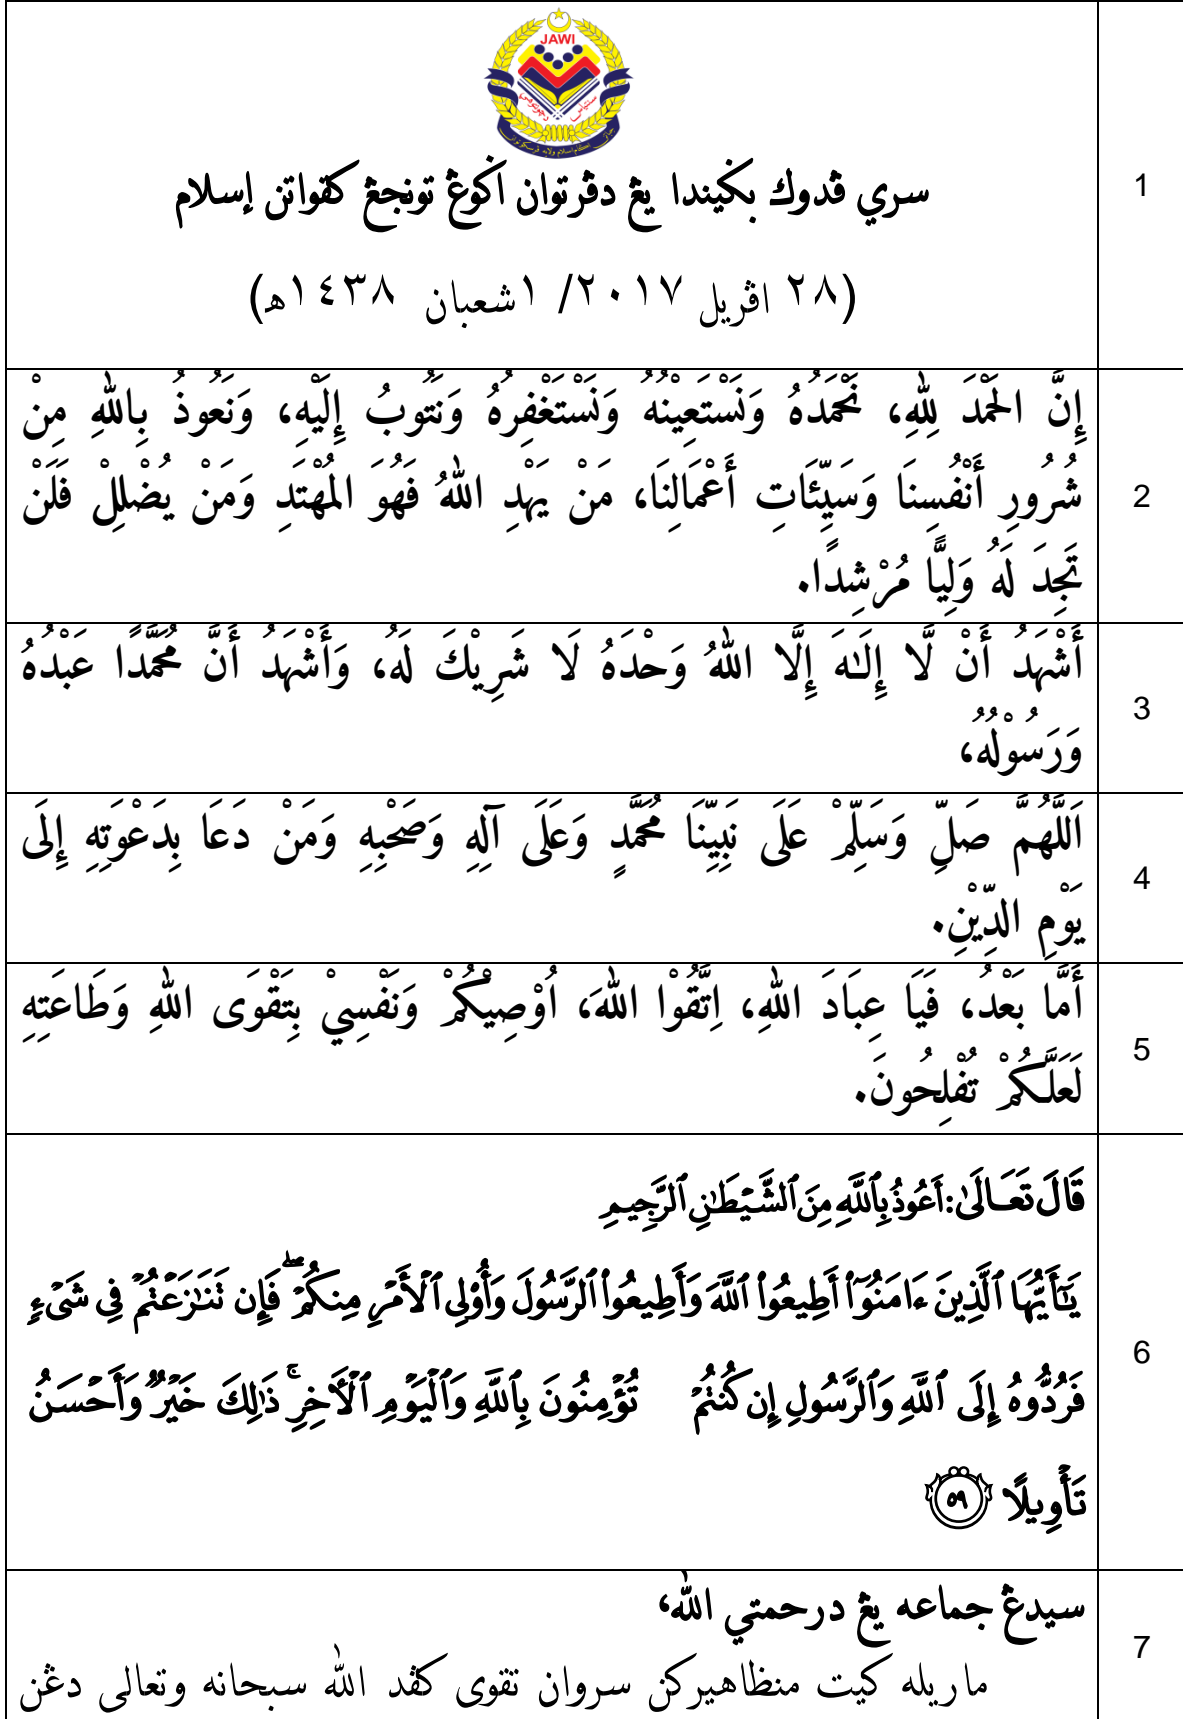 JAWI
سري ڤدوك بݢيندا يڠ دڤرتوان اݢوڠ تونجڠ كقواتن إسلام
1
(٢٨ اڤريل ٢٠١٧/ ١شعبان ١٤٣٨ه)
إِنَّ الْحَمْدَ لِلَّهِ، نَحْمَدُهُ وَنَسْتَعِيْنُهُ وَنَسْتَغْفِرُهُ وَنَتُوبُ إِلَيْهِ، وَنَعُوذُ بِاللهِ مِنْ
شُرُورِ أَنْفُسِنَا وَسَيِّئَاتِ أَعْمَالِنَا، مَنْ يَهْدِ اللهُ فَهُوَ الْمُهْتَدِ وَمَنْ يُضْلِلْ فَلَنْ
2
تَجِدَ لَهُ وَلِيًّا مُرْشِدًا.
أَشْهَدُ أَنْ لَّا إِلَـٰهَ إِلَّا اللهُ وَحْدَهُ لَا شَرِيْكَ لَهُ، وَأَشْهَدُ أَنَّ مُحَمَّدًا عَبْدُهُ
3
وَرَسُوْلُهُ،
اَللَّهُمَّ صَلِّ وَسَلِّمْ عَلَى نَبِيِّنَا مُحَمَّدٍ وَعَلَى آلِهِ وَصَحْبِهِ وَمَنْ دَعَا بِدَعْوَتِهِ إِلَى
4
يَوْمِ الدِّيْنِ.
أَمَّا بَعْدُ، فَيَا عِبَادَ اللهِ، اِتَّقُوْا اللهَ، أُوْصِيْكُمْ وَنَفْسِيْ بِتَقْوَى اللهِ وَطَاعَتِهِ
5
لَعَلَّكُمْ تُفْلِحُونَ.
قَالَ تَعَالَىٰ: أَعُوذُ بِٱللَّهِ مِنَ ٱلشَّيْطَٰنِ ٱلرَّجِيمِ
يَٰٓأَيُّهَا ٱلَّذِينَ ءَامَنُوٓا۟ أَطِيعُوا۟ ٱللَّهَ وَأَطِيعُوا۟ ٱلرَّسُولَ وَأُو۟لِى ٱلْأَمْرِ مِنكُمْ ۖ فَإِن تَنَٰزَعْتُمْ فِى شَىْءٍ
6
فَرُدُّوهُ إِلَى ٱللَّهِ وَٱلرَّسُولِ إِن كُنتُمْ تُؤْمِنُونَ بِٱللَّهِ وَٱلْيَوْمِ ٱلْءَاخِرِ ۚ ذَٰلِكَ خَيْرٌ وَأَحْسَنُ
تَأْوِيلًا ﴿٥٩﴾
سيدڠ جماعه يڠ درحمتي الله،
7
ماريله كيت منظاهيركن سروان تقوى كڤد الله سبحانه وتعالى دڠن